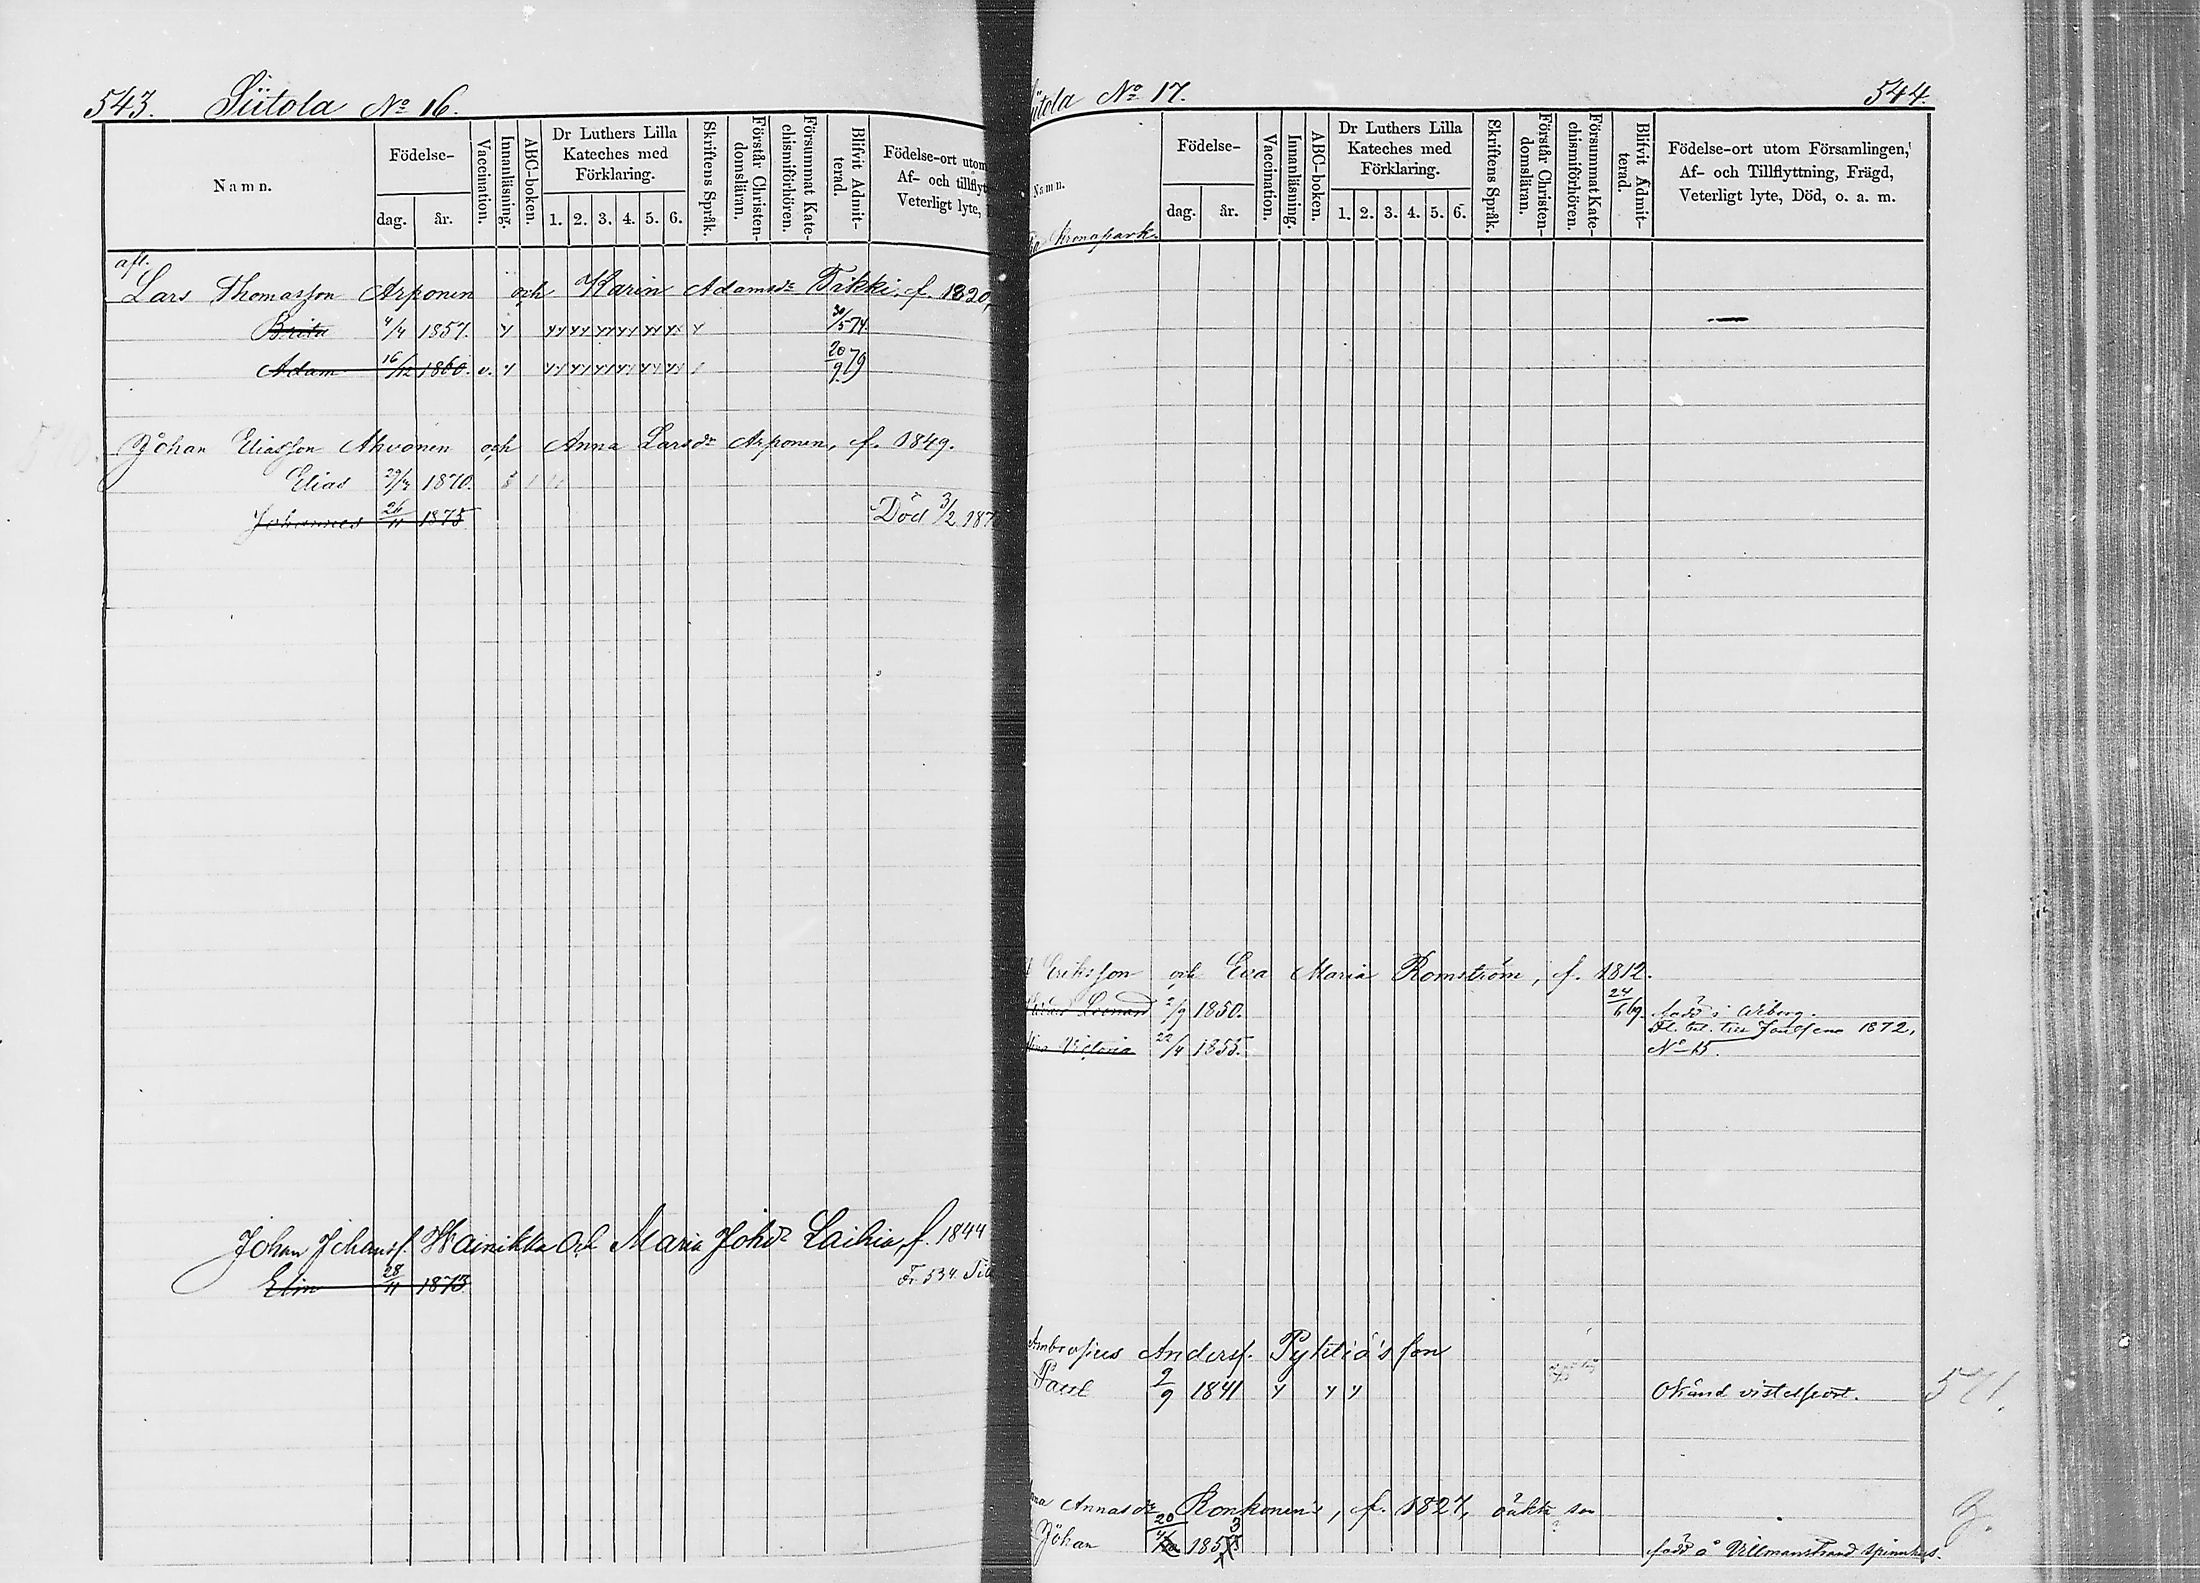 543. Siitola No 16.
Namn.
Födelse-
dag. år.
Vaccination.
Innanläsning.
ABC-boken.
Dr Luthers Lilla
Kateches med
Förklaring.
1. 2. 3. 4. 5. 6.
Skriftens Språk.
Förstår Christen-
domsläran.
Försummat Kate-
chismiförhören.
Blifvit Admit-
terad.
Födelse-ort utom
Af- och tillflyt
Veterligt lyte,
afl.
Lars Thomasson Arponen och Karin Adamsdr Tikki, f. 1820,
Brita 4/4 1857. 30/5 74
Adam 16/12 1860. v. 20/9 79
Johan Eliasson Ahvonen och Anna Larsdr Arponen, f. 1849.
Elias 29/4 1870.
Johannes 26/11 1875 Död 3/2 187
Johan Johansf. Wainikka och Maria Johdr Laihia, f. 1844
Elin 28/11 1873. Fr. 534. Till
itola No 17. 544.
Namn.
Födelse-
dag. år.
Vaccination.
Innanläsning.
ABC-boken.
Dr Luthers Lilla
Kateches med
Förklaring.
1. 2. 3. 4. 5. 6.
Skriftens Språk.
Förstår Christen-
domsläran.
Försummat Kate-
chismiförhören.
Blifvit Admit-
terad.
Födelse-ort utom Församlingen,
Af- och Tillflyttning, Frägd,
Veterligt lyte, Död, o. a. m.
Kronopark.
Eriksson och Eva Maria Romström, f. 1812.
Leonard 2/9 1850. 24/6 69. född i Wiborg.
Fl. bet. till 1872,
Victoria 22/4 1855. No 15.
Ambrosius Andersf. Pyhtiä's son
Paul 2/9 1841 Okänd vistelseort. 571.
Annasdr Ronkonen's, f. 1827, oäkta son
Johan 20 185 3 född å Villmanstrand spinnhus.